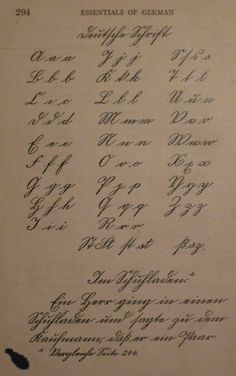 294 ESSENTIALS OF GERMAN
Deutsche Schrift
A a a J j j S ſ s s
B b b K k k T t t
C c c L l l U u u
D d d M m m V v v
E e e N n n W w w
F f f O o o X x x
G g g P p p Y y y
H h h Q q q Z z z
I i i R r r
St St ſt st ß sz.
Im Schuhladen.¹
Ein Herr ging in einen
Schuhladen und sagte zu dem
Kaufmann, daß er ein Paar
¹ Vergleiche Seite 244.